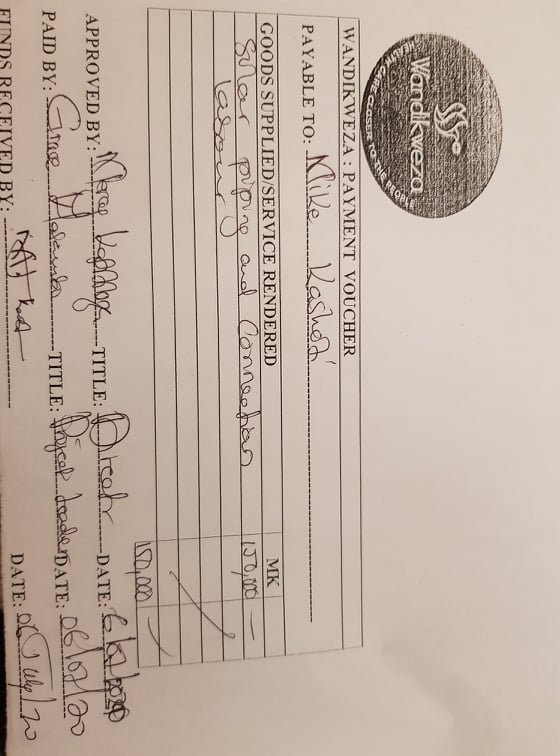 Wandikweza
CARE CLOSER TO THE PEOPLE
WANDIKWEZA : PAYMENT VOUCHER
PAYABLE TO: Mike Kashoti
GOODS SUPPLIED/SERVICE RENDERED MK
Solar piping and Connection 150,000
labour
150,000
APPROVED BY: TITLE: Director DATE: 6/07/2020
PAID BY: Grace TITLE: Project Leader DATE: 06/07/20
FUNDS RECEIVED BY: DATE: 06 July/20